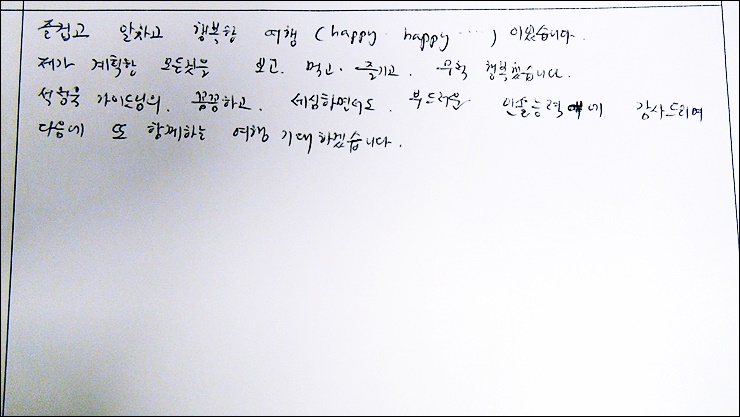 즐겁고 알차고 행복한 여행 (happy happy …) 이었습니다.
제가 계획한 모든것을 보고. 먹고. 즐기고. 무척 행복했습니다.
가이드님의. 꼼꼼하고. 세심하면서도. 부드러운 인솔능력에 감사드리며
다음에 또 함께하는 여행 기대하겠습니다.